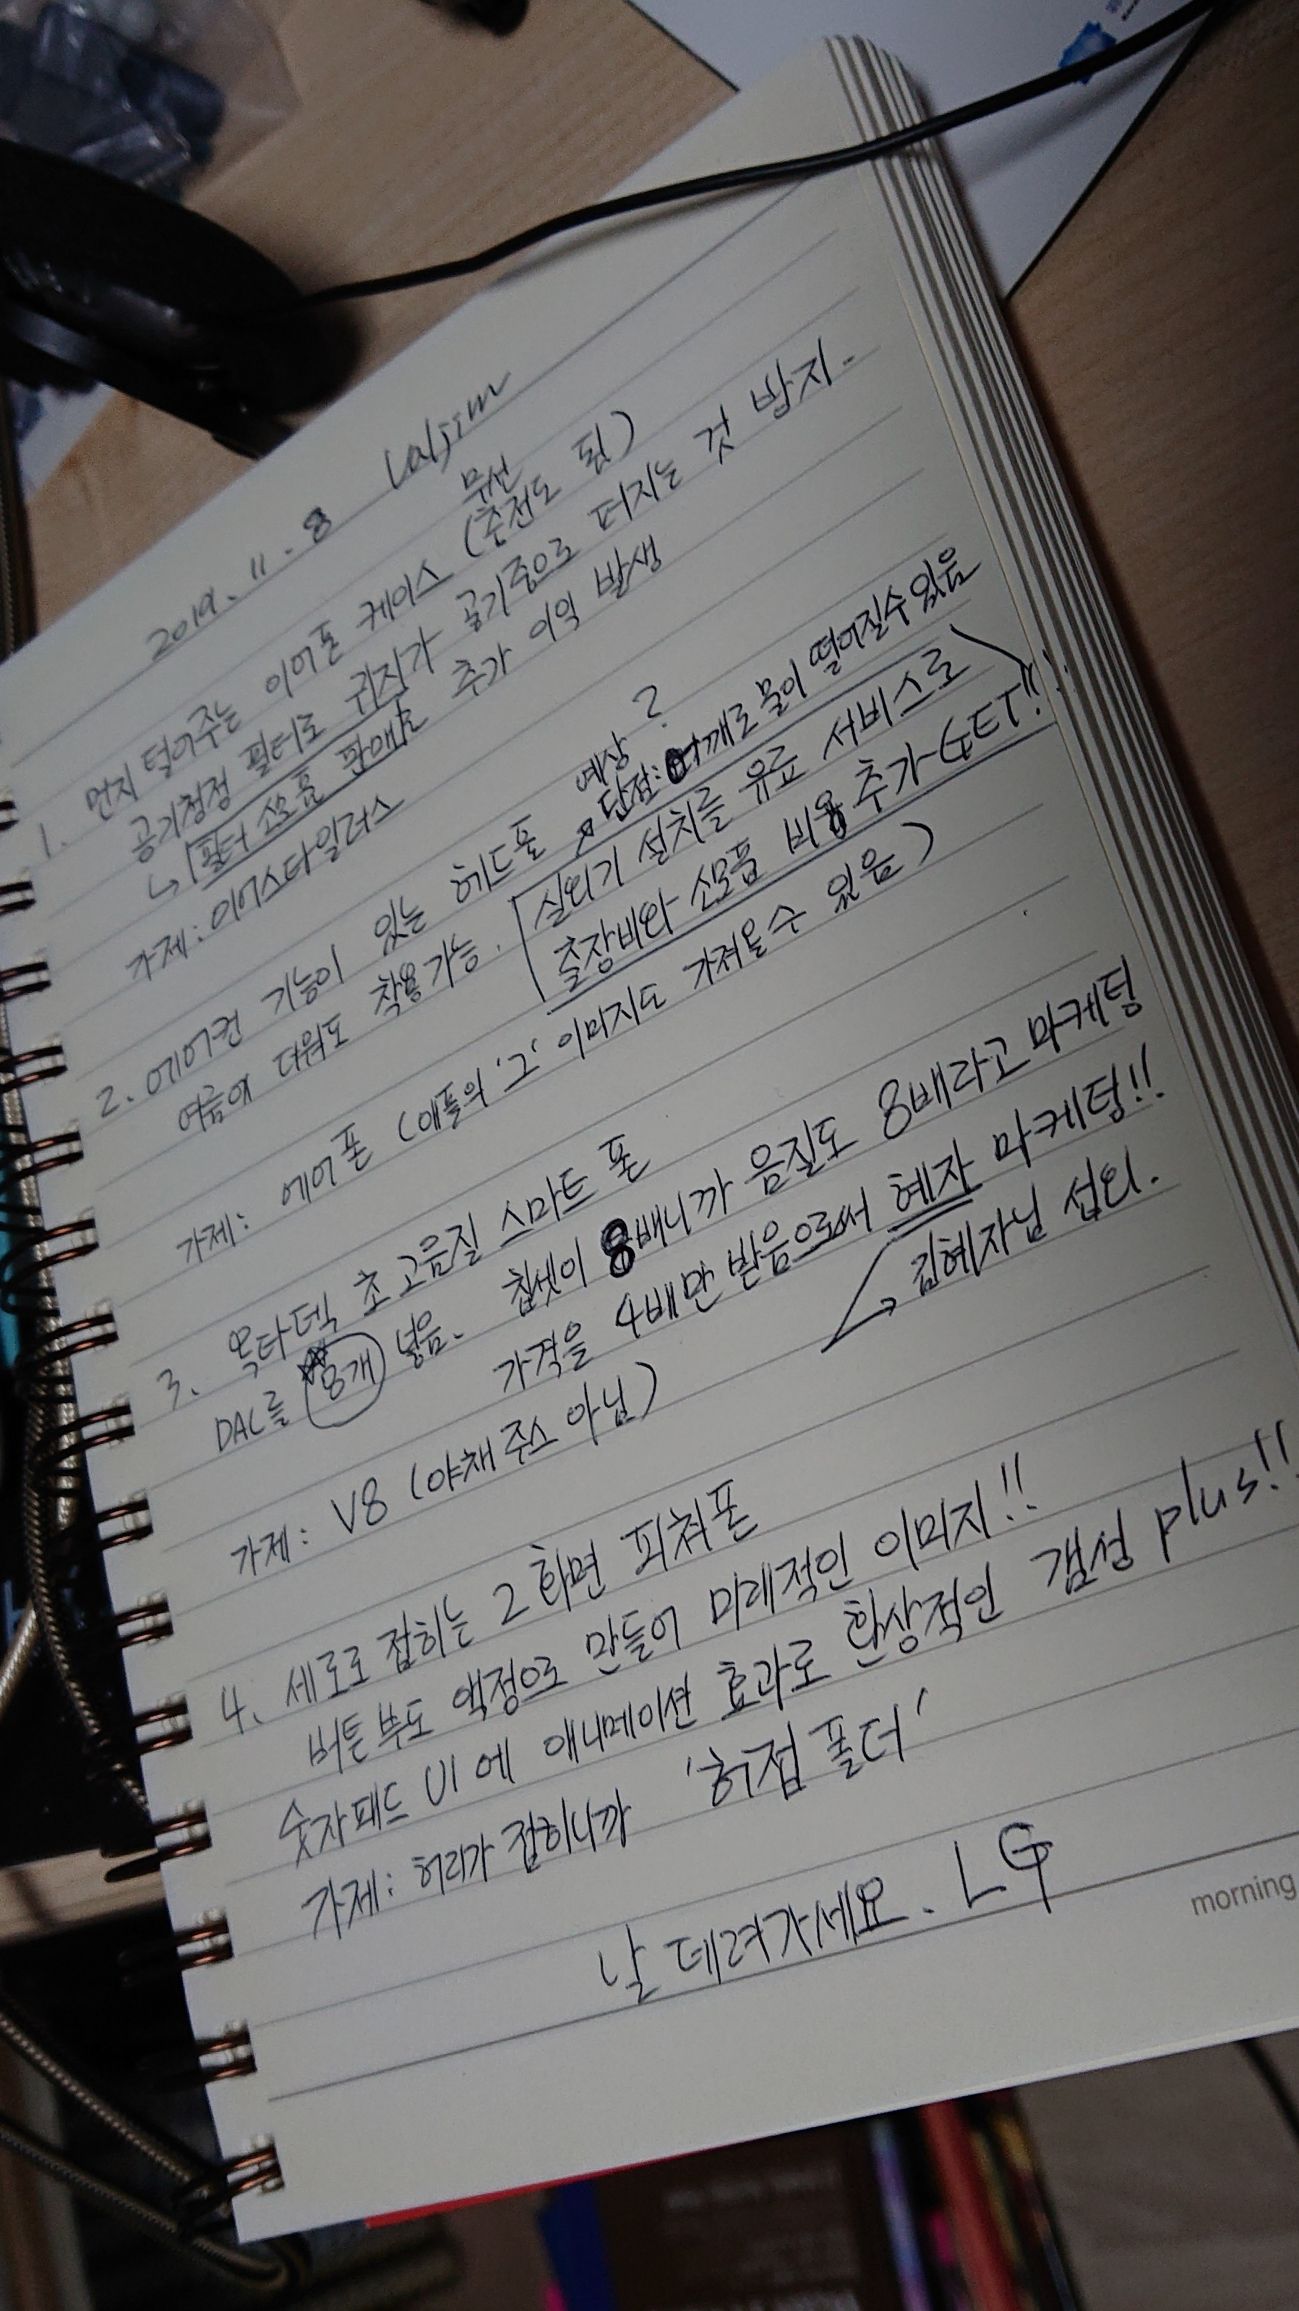 2019. 11. 8
1. 먼지 털어주는 이어폰 케이스 (무선 충전도 됨)
공기청정 필터로 귀지가 공기중으로 퍼지는 것 방지.
↳ 필터 소모품 판매로 추가 이익 발생
가제: 이어스타일러스
2. 에어컨 기능이 있는 헤드폰
예상 단점: 어깨로 물이 떨어질수있음
?
여름에 더워도 착용가능.
실외기 설치를 유료 서비스로
출장비와 소모품 비용 추가 GET!!
가제: 에어폰 (애플의 '그' 이미지도 가져올수 있음)
3. 옥타덱 초고음질 스마트폰
DAC를 8개 넣음. 칩셋이 8배니까 음질도 8배라고 마케팅
가격을 4배만 받음으로써 혜자 마케팅!!
→ 김혜자님 섭외.
가제: V8 (야채 주스 아님)
4. 세로로 접히는 2화면 피쳐폰
버튼부도 액정으로 만들어 미래적인 이미지!!
숫자패드 UI에 애니메이션 효과로 환상적인 갬성 plus!!
가제: 허리가 접히니까 '허접폴더'
날 데려가세요. LG
morning